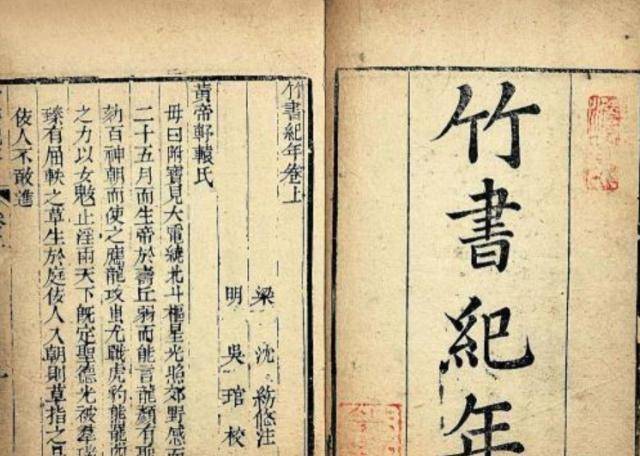 竹書紀年
竹書紀年卷上
梁 沈約附注
明 吳琯校
黃帝軒轅氏
母曰附寶見大電繞北斗樞星光照郊野感而
二十五月而生帝於壽丘弱而能言龍顏有聖
劾百神朝而使之應龍攻蚩尤戰虎豹熊羆四
之力以女魃止淫雨天下旣定聖德光被羣瑞
臻有屈軼之草生於庭佞人入朝則草指之是
佞人不敢進